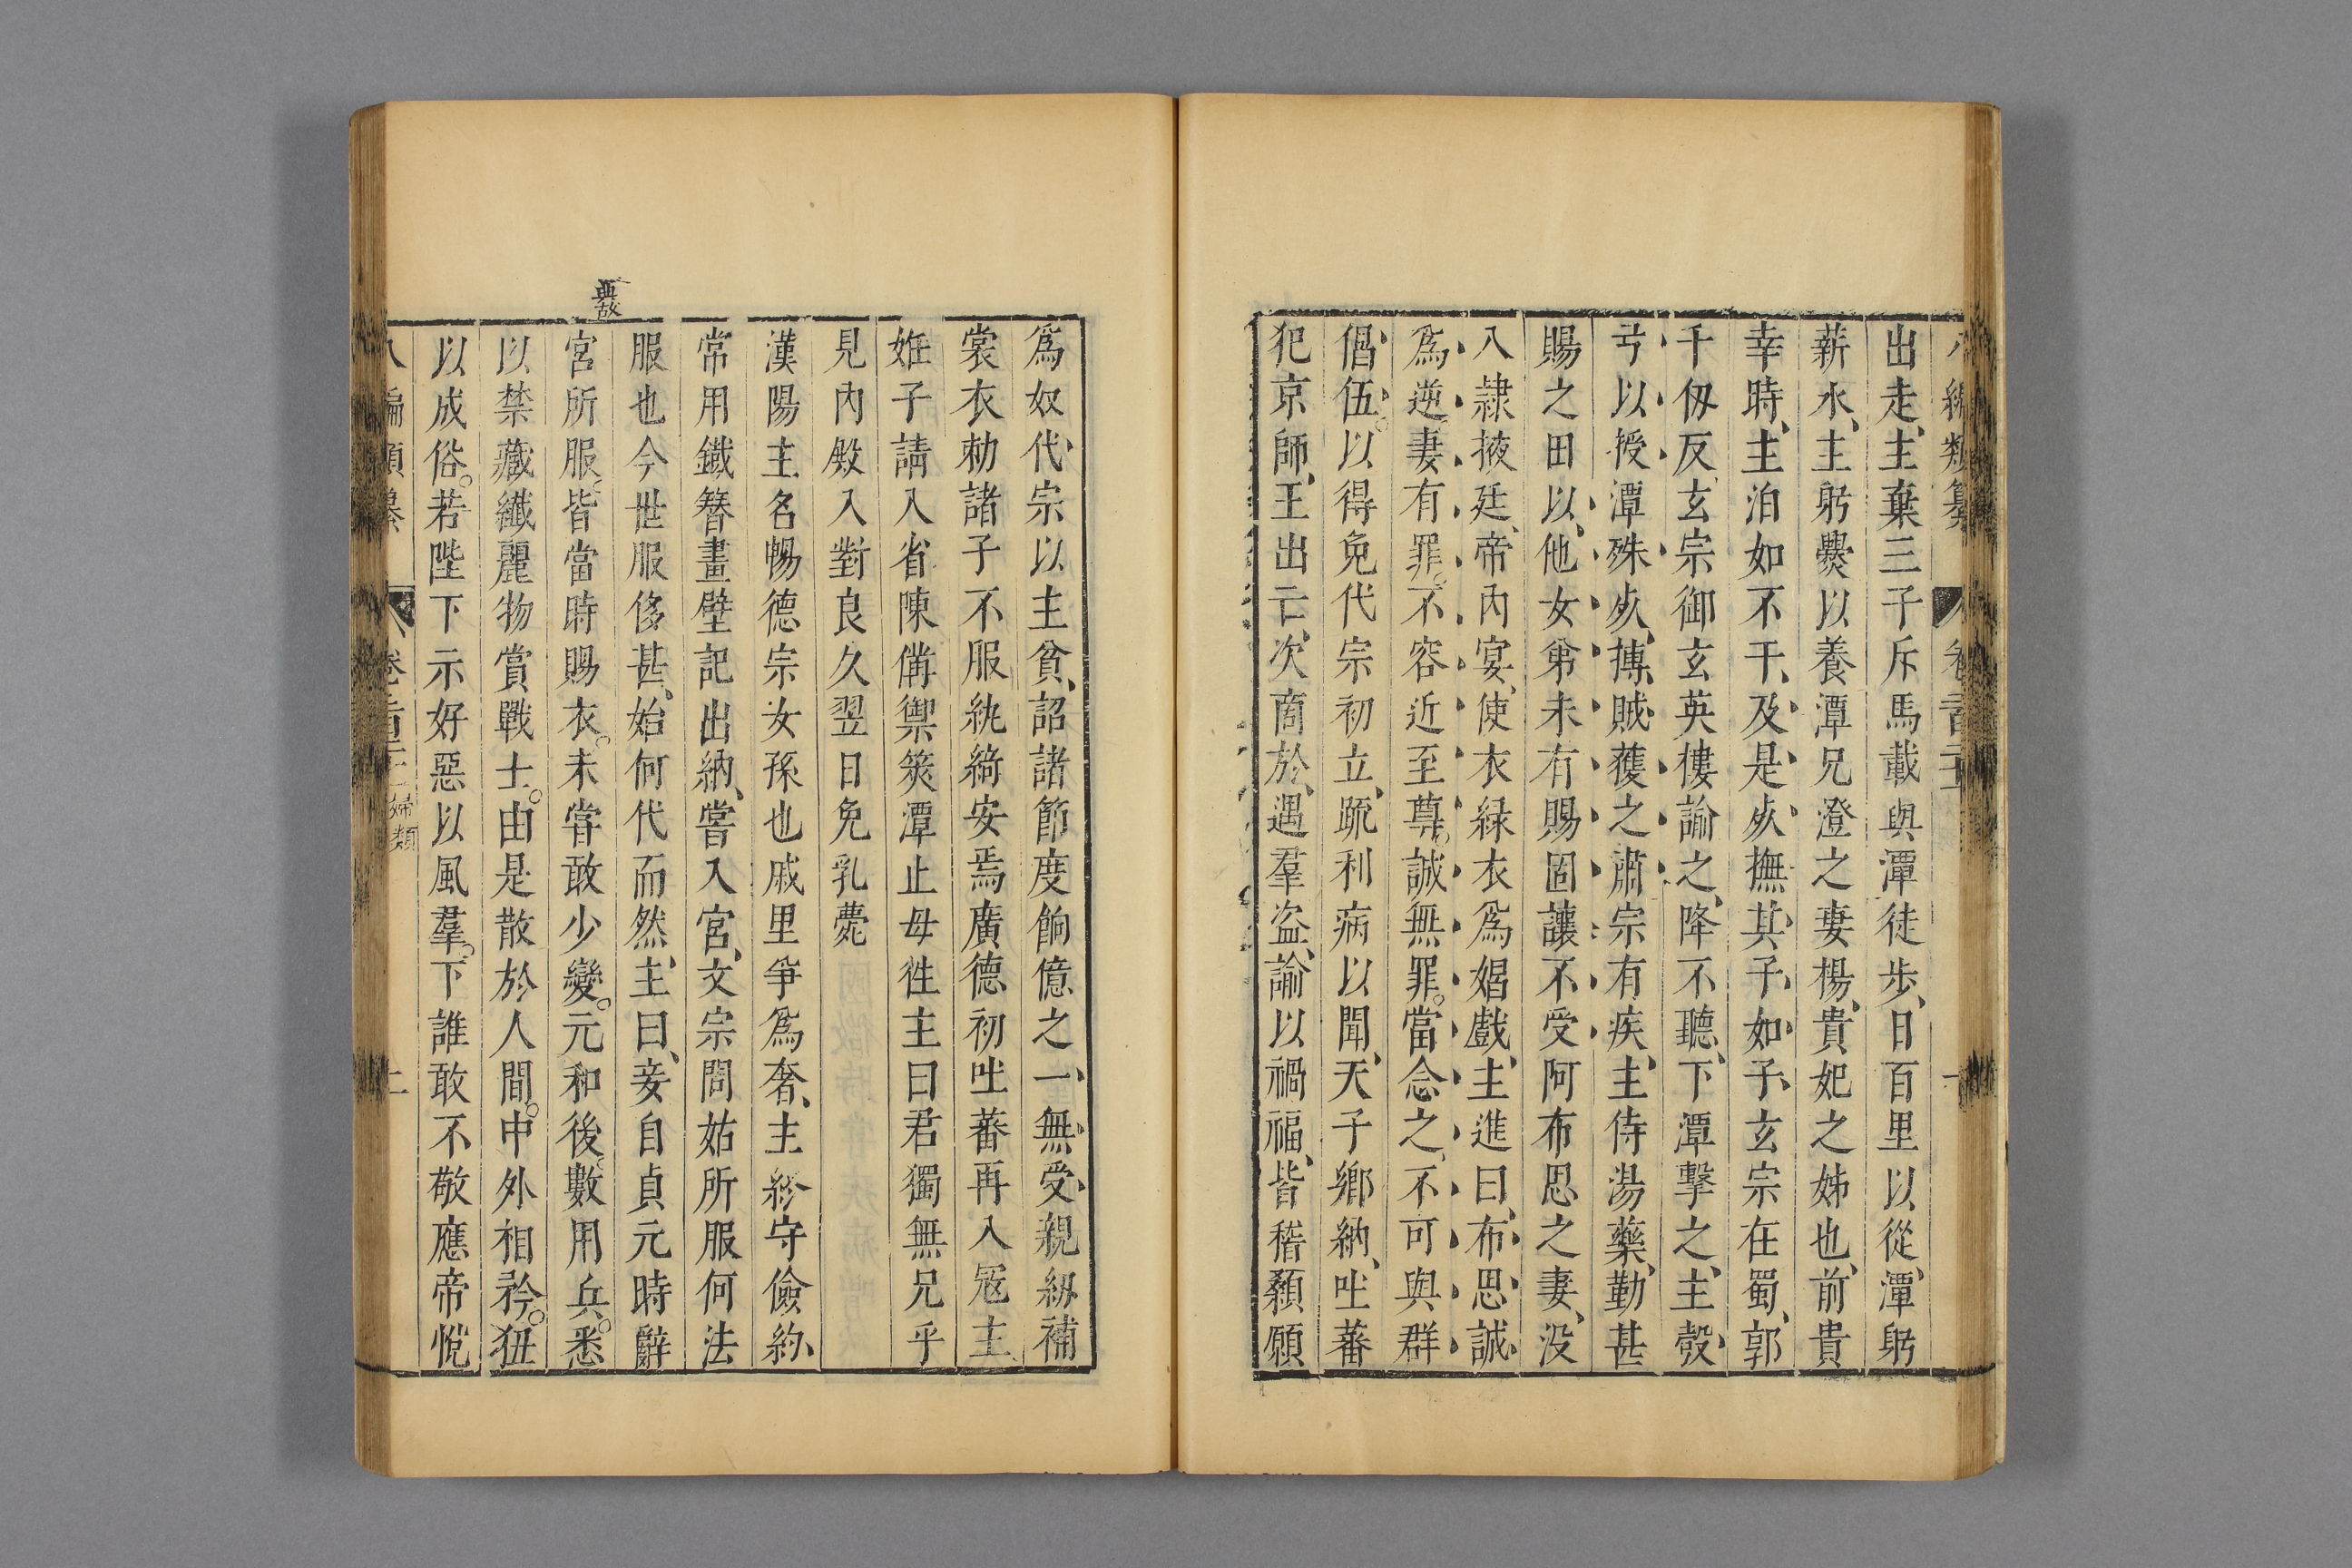 八編類纂 卷一百二十二 一
出走主棄三子斥馬載與潭徒步日百里以從潭躬
薪水主躬㸑以養潭兄澄之妻楊貴妃之姊也前貴
幸時主泊如不干及是死撫其子如子玄宗在蜀郭
千仭反玄宗御玄英樓諭之降不聽下潭擊之主彀
弓以授潭殊死摶賊獲之肅宗有疾主侍湯藥勤甚
賜之田以他女弟未有賜固讓不受阿布思之妻没
入隷掖廷帝内宴使衣緑衣爲娼戲主進曰布思誠
爲逆妻有罪不容近至尊誠無罪當念之不可與群
倡伍以得免代宗初立疏利病以聞天子鄉納吐蕃
犯京師王出亡次商於遇羣盜諭以禍福皆稽顙願
爲奴代宗以主貧詔諸節度餉億之一無受親紉補
裳衣勅諸子不服紈綺安焉廣德初吐蕃再入冦主
姙子請入省陳僃禦筴潭止毋徃主曰君獨無兄乎
見内殿入對良久翌日免乳薨
漢陽主名暢德宗女孫也戚里爭爲奢主紾守儉約
常用鐵簪畫壁記出納嘗入宮文宗問姑所服何法
服也今世服侈甚始何代而然主曰妾自貞元時辭
典故
宮所服皆當時賜衣未甞敢少變元和後數用兵悉
以禁藏纖麗物賞戰士由是散於人間中外相矜狃
以成俗若陛下示好惡以風羣下誰敢不敬應帝悦
八編類纂 卷一百二十二 婦類 二